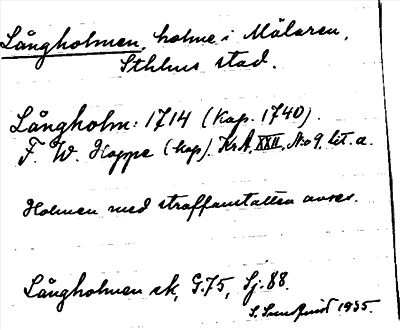 Långholmen, holme i Mälaren,
Sthlms stad.
Långholm: 1714 (kop. 1740).
F. W. Hoppe (kop). Kr A. XXII, No 9. lit. a.
Holmen med straffanstalten avses.
Långholmen sk, G.75, Sj.88.
S. Sundquist 1935.